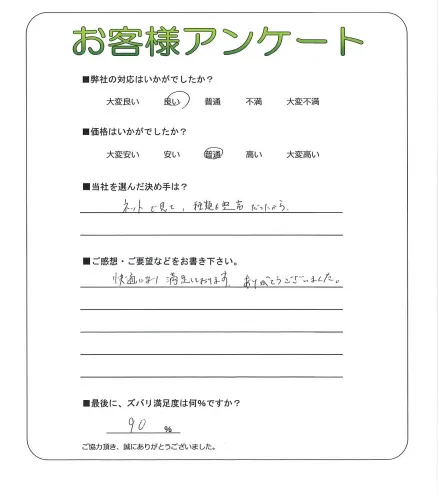 お客様アンケート
■弊社の対応はいかがでしたか?
大変良い 良い 普通 不満 大変不満
■価格はいかがでしたか?
大変安い 安い 普通 高い 大変高い
■当社を選んだ決め手は?
ネットで見て、種類も豊富だったから。
■ご感想・ご要望などをお書き下さい。
快適になり満足しております。ありがとうございました。
■最後に、ズバリ満足度は何%ですか?
90 %
ご協力頂き、誠にありがとうございました。